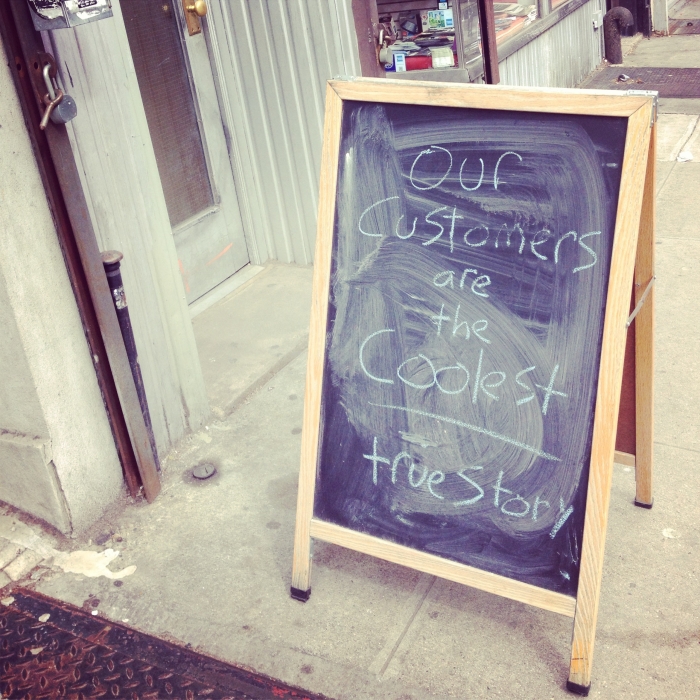 Our
Customers
are
the
Coolest
true Story